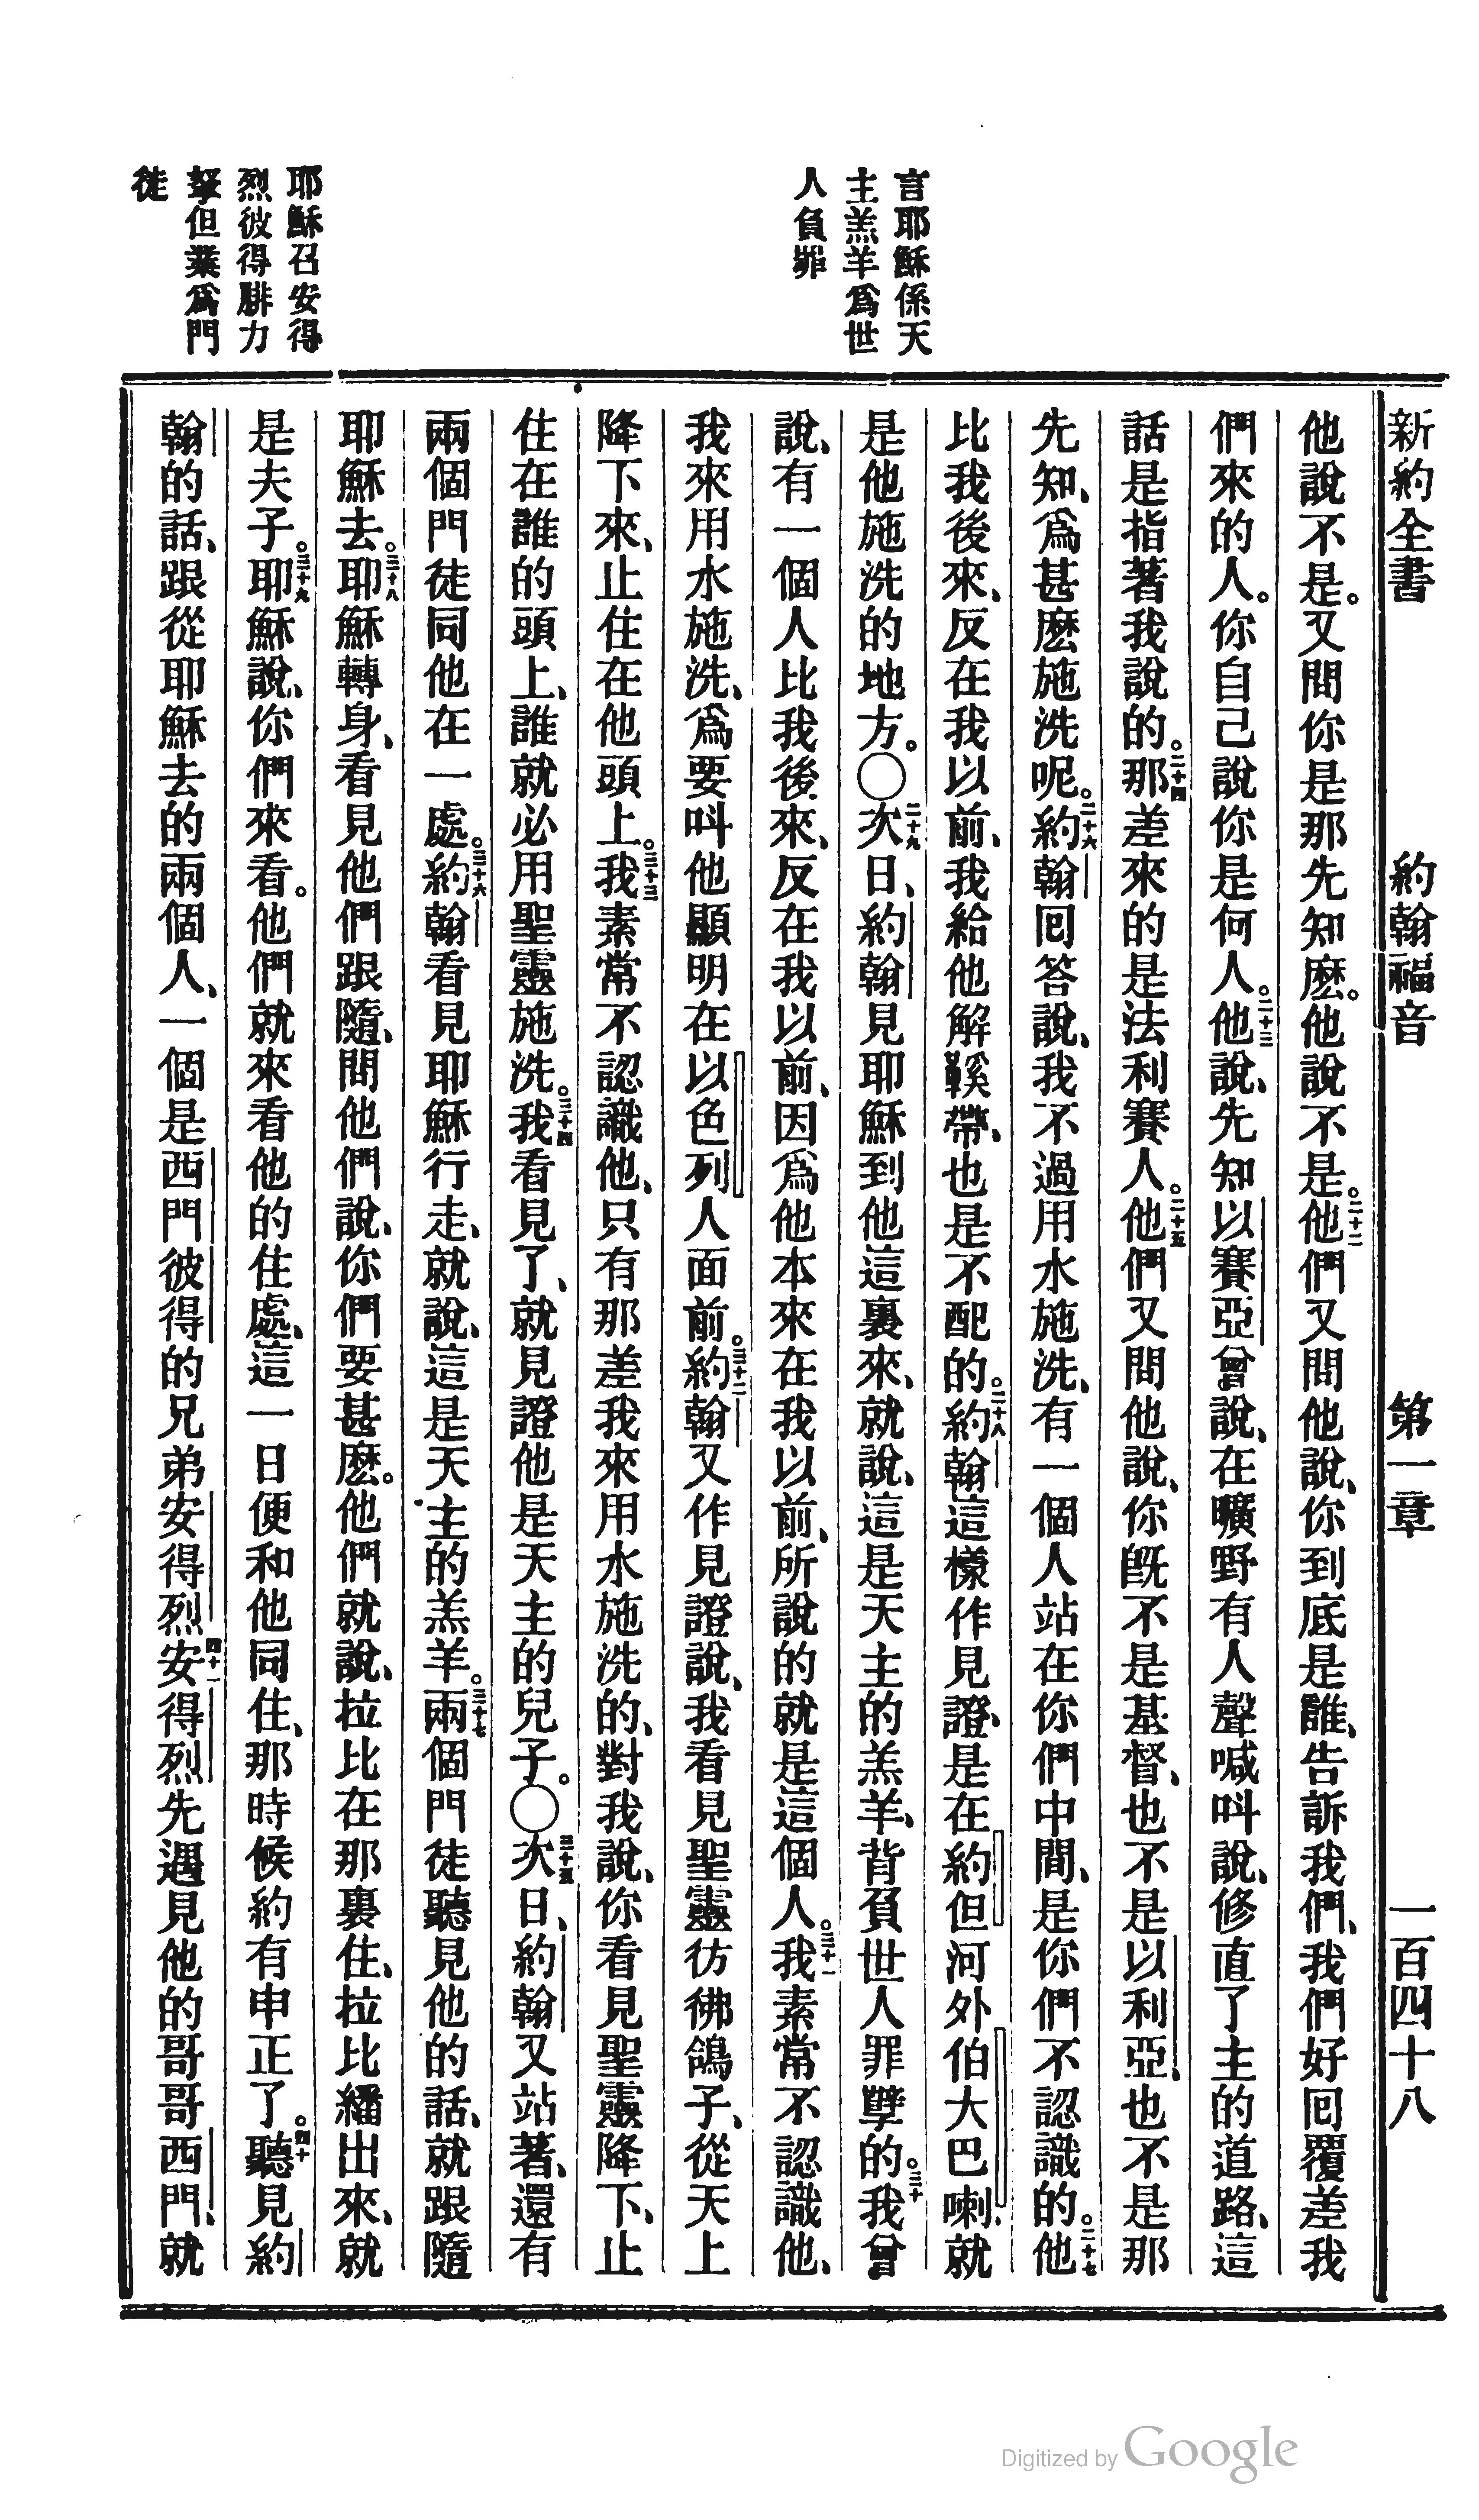 新約全書 約翰福音 第一章 一百四十八
言耶穌係天
主羔羊爲世
人負罪
耶穌召安得
烈彼得腓力
拏但業爲門
徒
他說不是。又問你是那先知麽。他說不是。二十二他們又問他說、你到底是誰、告訴我們、我們好回覆差我
們來的人。你自己說你是何人。二十三他說、先知以賽亞曾說、在曠野有人聲喊叫說、修直了主的道路、這
話是指著我說的。二十四那差來的是法利賽人。二十五他們又問他說、你旣不是基督、也不是以利亞、也不是那
先知、爲甚麽施洗呢。二十六約翰回答說、我不過用水施洗、有一個人站在你們中間、是你們不認識的。二十七他
比我後來、反在我以前、我給他解鞵帶、也是不配的。二十八約翰這樣作見證、是在約但河外伯大巴喇、就
是他施洗的地方。〇二十九次日、約翰見耶穌到他這裏來、就說、這是天主的羔羊、背負世人罪孽的。三十我曾
說、有一個人比我後來、反在我以前、因爲他本來在我以前、所說的就是這個人。三十一我素常不認識他、
我來用水施洗、爲要叫他顯明在以色列人面前。三十二約翰又作見證說、我看見聖靈彷彿鴿子、從天上
降下來、止住在他頭上。三十三我素常不認識他、只有那差我來用水施洗的、對我說、你看見聖靈降下、止
住在誰的頭上、誰就必用聖靈施洗。三十四我看見了、就見證他是天主的兒子。〇三十五次日、約翰又站著、還有
兩個門徒同他在一處。三十六約翰看見耶穌行走、就說、這是天主的羔羊。三十七兩個門徒聽見他的話、就跟隨
耶穌去。三十八耶穌轉身、看見他們跟隨、問他們說、你們要甚麽。他們就說、拉比在那裏住、拉比繙出來、就
是夫子。三十九耶穌說、你們來看。他們就來看他的住處、這一日便和他同住、那時候約有申正了。四十聽見約
翰的話、跟從耶穌去的兩個人、一個是西門彼得的兄弟安得烈四十一安得烈先遇見他的哥哥西門、就
Digitized by Google